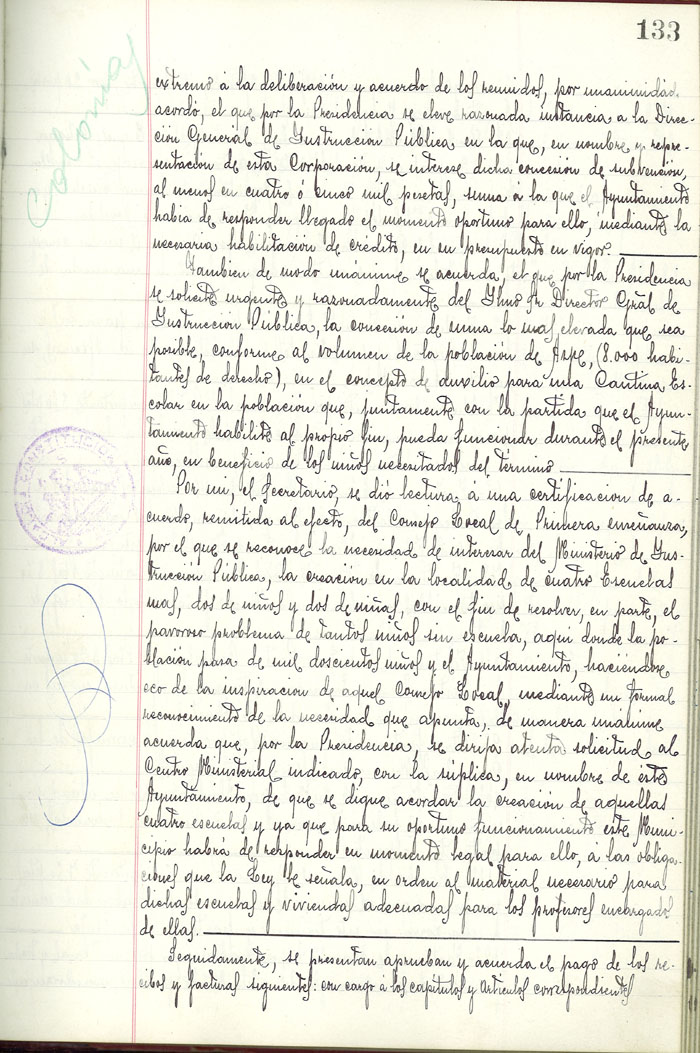 133
Colonias
extremo á la deliberación y acuerdo de los reunidos, por unanimidad
acordó, el que por la Presidencia se eleve razonada instancia a la Direc-
ción General de Instrucción Pública en la que, en nombre y repre-
sentación de esta Corporación, se interese dicha concesión de subvención,
al menos en cuatro ó cinco mil pesetas, suma á la que el Ayuntamiento
habia de responder llegado el momento oportuno para ello, mediante la
necesaria habilitación de crédito, en su presupuesto en vigor.
Tambien de modo unánime se acuerda, el que por la Presidencia
se solicite urgente y razonadamente del Ilmo Sr Director Gral de
Instrucción Pública, la concesión de suma lo mas elevada que sea
posible, conforme al volumen de la población de Aspe, (8.000 habi-
tantes de derecho), en el concepto de auxilio para una Cantina Es-
colar en la población que, juntamente con la partida que el Ayun-
tamiento habilite al propio fin, pueda funcionar durante el presente
año, en beneficio de los niños necesitados del termino
Por mi, el Secretario, se dió lectura á una certificacion de a-
cuerdo, remitida al efecto, del Consejo Local de Primera enseñanza,
por el que se reconoce la necesidad de interesar del Ministerio de Ins-
trucción Pública, la creación en la localidad de cuatro Escuelas
mas, dos de niños y dos de niñas, con el fin de resolver, en parte, el
pavoroso problema de tantos niños sin escuela, aqui donde la po-
blación pasa de mil doscientos niños y el Ayuntamiento, haciéndose
eco de la inspiracion de aquel Consejo Local, mediante un formal
reconocimiento de la necesidad que apunta, de manera unánime
acuerda que, por la Presidencia, se dirija atenta solicitud al
Centro Ministerial indicado, con la súplica, en nombre de este
Ayuntamiento, de que se digne acordar la creación de aquellas
cuatro escuelas y ya que para su oportuno funcionamiento este Muni-
cipio habrá de responder en momento legal para ello, á las obliga-
ciones que la Ley le señala, en orden al material necesario para
dichas escuelas y viviendas adecuadas para los profesores encargados
de ellas.
Seguidamente, se presentan aprueban y acuerda el pago de los re-
cibos y facturas siguientes: con cargo á los capitulos y articulos correspondientes